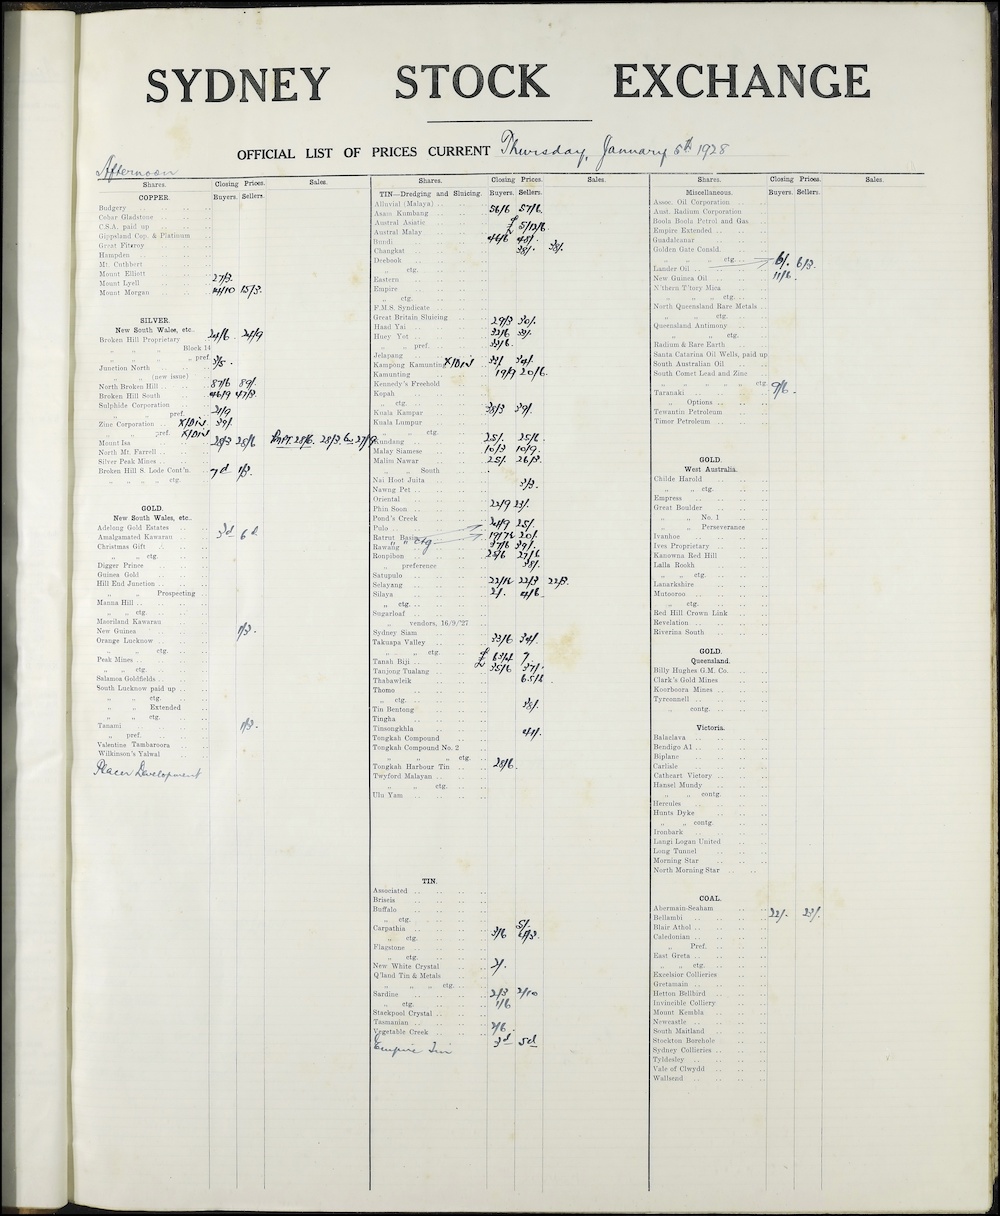 SYDNEY STOCK EXCHANGE
OFFICIAL LIST OF PRICES CURRENT Thursday, January 5th 1928
Afternoon
Shares. Closing Prices. Sales.
COPPER. Buyers. Sellers.
Budgery
Cobar Gladstone
C.S.A. paid up
Gippsland Cop. & Platinum
Great Fitzroy
Hampden
Mt. Cuthbert
Mount Elliott
Mount Lyell 27/3.
Mount Morgan 14/10 15/3.
SILVER.
New South Wales, etc.
Broken Hill Proprietary 24/6 24/9
" " " Block 14
" " " " pref.
Junction North 3/5
" " (new issue)
North Broken Hill 87/6 89/.
Broken Hill South 46/9 47/3.
Sulphide Corporation 21/9
" " pref.
Zinc Corporation X/Div 39/.
" " pref. X/Div
Mount Isa 28/3 28/6
North Mt. Farrell
Silver Peak Mines
Broken Hill S. Lode Cont'n. 7d 1/3.
" " " " ctg.
GOLD.
New South Wales, etc.
Adelong Gold Estates
Amalgamated Kawarau 3d 6d
Christmas Gift
" " ctg.
Digger Prince
Guinea Gold
Hill End Junction
" " Prospecting
Mauna Hill
" " ctg.
Maoriland Kawarau
New Guinea 1/3.
Orange Lucknow
" " ctg.
Peak Mines
" " ctg.
Salamoa Goldfields
South Lucknow paid up
" " ctg.
" " Extended
" " ctg.
Tanami 1/3.
" pref.
Valentine Tambaroora
Wilkinson's Yalwal
Placer Development
Shares. Closing Prices. Sales.
TIN—Dredging and Sluicing. Buyers. Sellers.
Alluvial (Malaya)
Asam Kumbang 56/6 57/6.
Austral Asiatic
Austral Malay £ 5/12/6
Bundi 46/6 48/.
Changkat 38/. 38/.
Deebook
" ctg.
Eastern
Empire
" ctg.
F.M.S. Syndicate
Great Britain Sluicing 29/3 30/.
Haad Yai 32/6 33/.
Huey Yot 33/6.
" " pref.
Jelapang
Kampong Kamunting X/Div 33/ 34/.
Kamunting 19/9 20/6.
Kennedy's Freehold
Kopah
" ctg.
Kuala Kampar 38/3 39/.
Kuala Lumpur
" " ctg.
Kundang 25/. 25/6
Malay Siamese 10/3 10/9.
Malim Nawar 25/. 26/3.
" " South
Nai Hoot Juita
Nawng Pet 3/3.
Oriental
Phin Soon 22/9 23/.
Pond's Creek
Pulo 24/9 25/.
Ratrut Basin
" " ctg 20/.
Rawang 37/6 39/.
Ronpibon 25/6 27/6
" preference 38/.
Satupulo
Selayang 22/3 22/3.
Silaya 2/. 4/6
" ctg.
Sugarloaf
" vendors, 16/9/'27
Sydney Siam
Takuapa Valley 33/6 34/.
" " ctg.
Tanah Biji £ 6 3/4 7
Tanjong Tualang 35/6 37/.
Thabawleik
Thomo
" ctg.
Tin Bentong 38/.
Tingha
Tinsongkhla
Tongkah Compound
Tongkah Compound No. 2
" " " ctg.
Tongkah Harbour Tin 28/6.
Twyford Malayan
" " ctg.
Ulu Yam
TIN.
Associated
Briseis
Buffalo
" ctg.
Carpathia 3/6 5/.
" ctg.
Flagstone
" ctg.
New White Crystal 2/.
Q'land Tin & Metals
" " " ctg.
Sardine 2/3 2/10
" ctg. 1/6
Stackpool Crystal
Tasmanian
Vegetable Creek
Empire Tin 3d 5d
Shares. Closing Prices. Sales.
Miscellaneous. Buyers. Sellers.
Assoc. Oil Corporation
Aust. Radium Corporation
Boola Boola Petrol and Gas
Empire Extended
Guadalcanar
Golden Gate Consld.
" " " ctg.
Lander Oil 6/. 6/3.
New Guinea Oil 11/6.
N'thern T'tory Mica
" " " ctg.
North Queensland Rare Metals
" " " ctg.
Queensland Antimony
" " ctg.
Radium & Rare Earth
Santa Catarina Oil Wells, paid up
South Australian Oil
South Comet Lead and Zinc
" " " " " ctg.
Taranaki 9/6.
" Options
Tewantin Petroleum
Timor Petroleum
GOLD.
West Australia.
Childe Harold
" " ctg.
Empress
Great Boulder
" " No. 1
" " Perseverance
Ivanhoe
Ives Proprietary
Kanowna Red Hill
Lalla Rookh
" " ctg.
Lanarkshire
Mutooroo
" ctg.
Red Hill Crown Link
Revelation
Riverina South
GOLD.
Queensland.
Billy Hughes G.M. Co.
Clark's Gold Mines
Koorboora Mines
Tyrconnell
" contg.
Victoria.
Balaclava
Bendigo A1
Biplane
Carlisle
Cathcart Victory
Hansel Mundy
" " contg.
Hercules
Hunts Dyke
" " contg.
Ironbark
Langi Logan United
Long Tunnel
Morning Star
North Morning Star
COAL.
Abermain-Seaham 22/. 23/.
Bellambi
Blair Athol
Caledonian
" Pref.
East Greta
" " ctg.
Excelsior Collieries
Gretamain
Hetton Bellbird
Invincible Colliery
Mount Kembla
Newcastle
South Maitland
Stockton Borehole
Sydney Collieries
Tyldesley
Vale of Clwydd
Wallsend